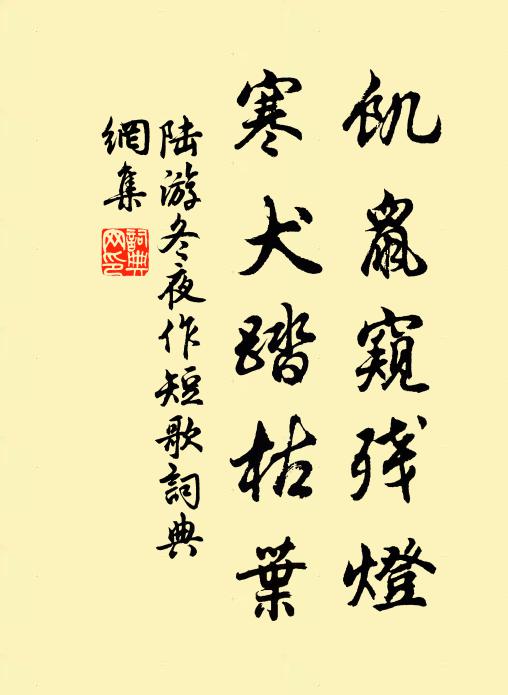 飢鼠窺残燈
寒犬踏枯葉
陆游冬夜作短歌詞典
網集
詞典
网印